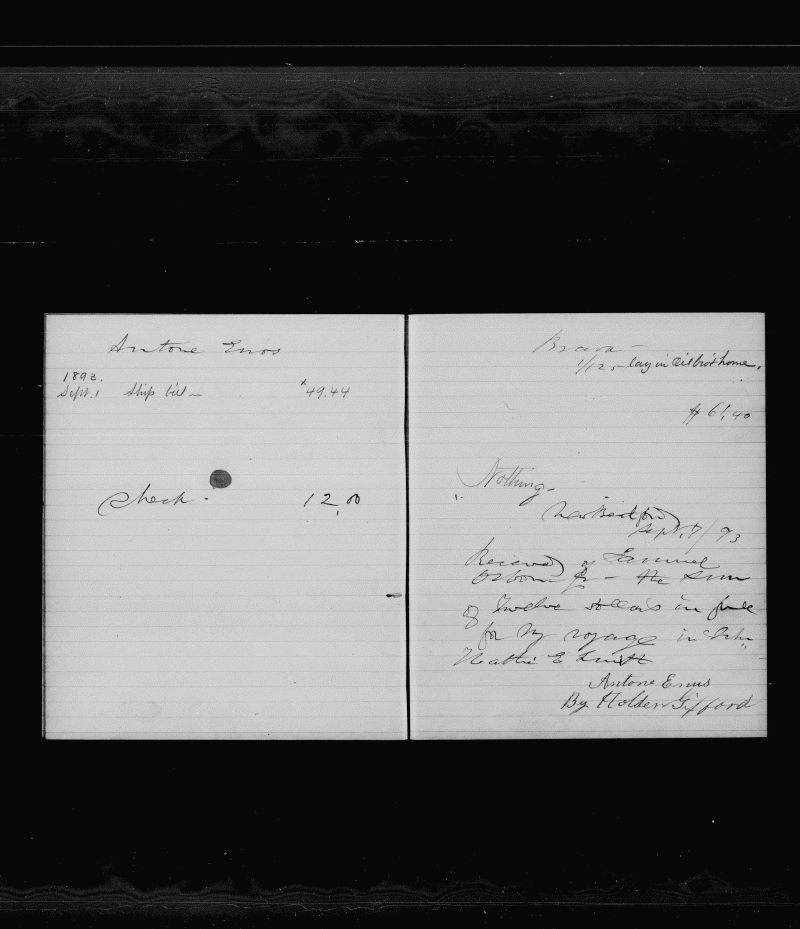 Antone Enos
1893.
Sept. 1 Ship bill — $49.44
Check - 12.00
Brava —
1/125 lay in Oil bro't home.
$ 61.40
Nothing —
New Bedford
Sept. 7/93
Received of Samuel
Osborn Jr — the sum
of Twelve dollars in full
for my voyage in "Schr
Hattie E Smith"
Antone Enus
By Holden Gifford